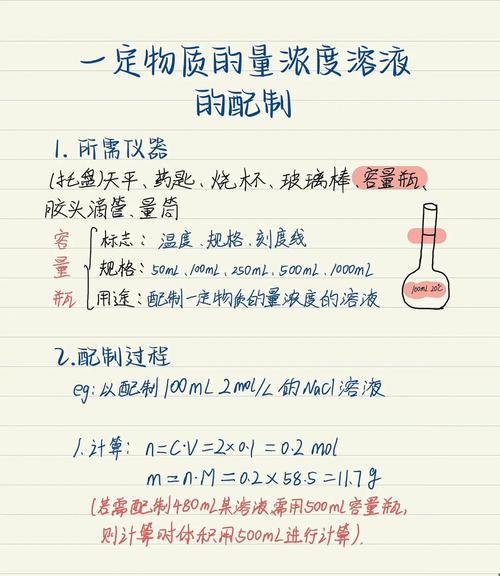 一定物质的量浓度溶液
的配制
1. 所需仪器
(托盘)天平、药匙、烧杯、玻璃棒、容量瓶、
胶头滴管、量筒
容量瓶
标志: 温度、规格、刻度线
规格: 50mL、100mL、250mL、500mL、1000mL
用途: 配制一定物质的量浓度的溶液
100mL 20℃
2. 配制过程
eg: 以配制100mL 2mol/L 的NaCl溶液
1. 计算: n=C·V=2×0.1=0.2 mol
m=n·M=0.2×58.5=11.7g
(若需配制480mL某溶液需用500mL容量瓶,
则计算时体积用500mL进行计算).